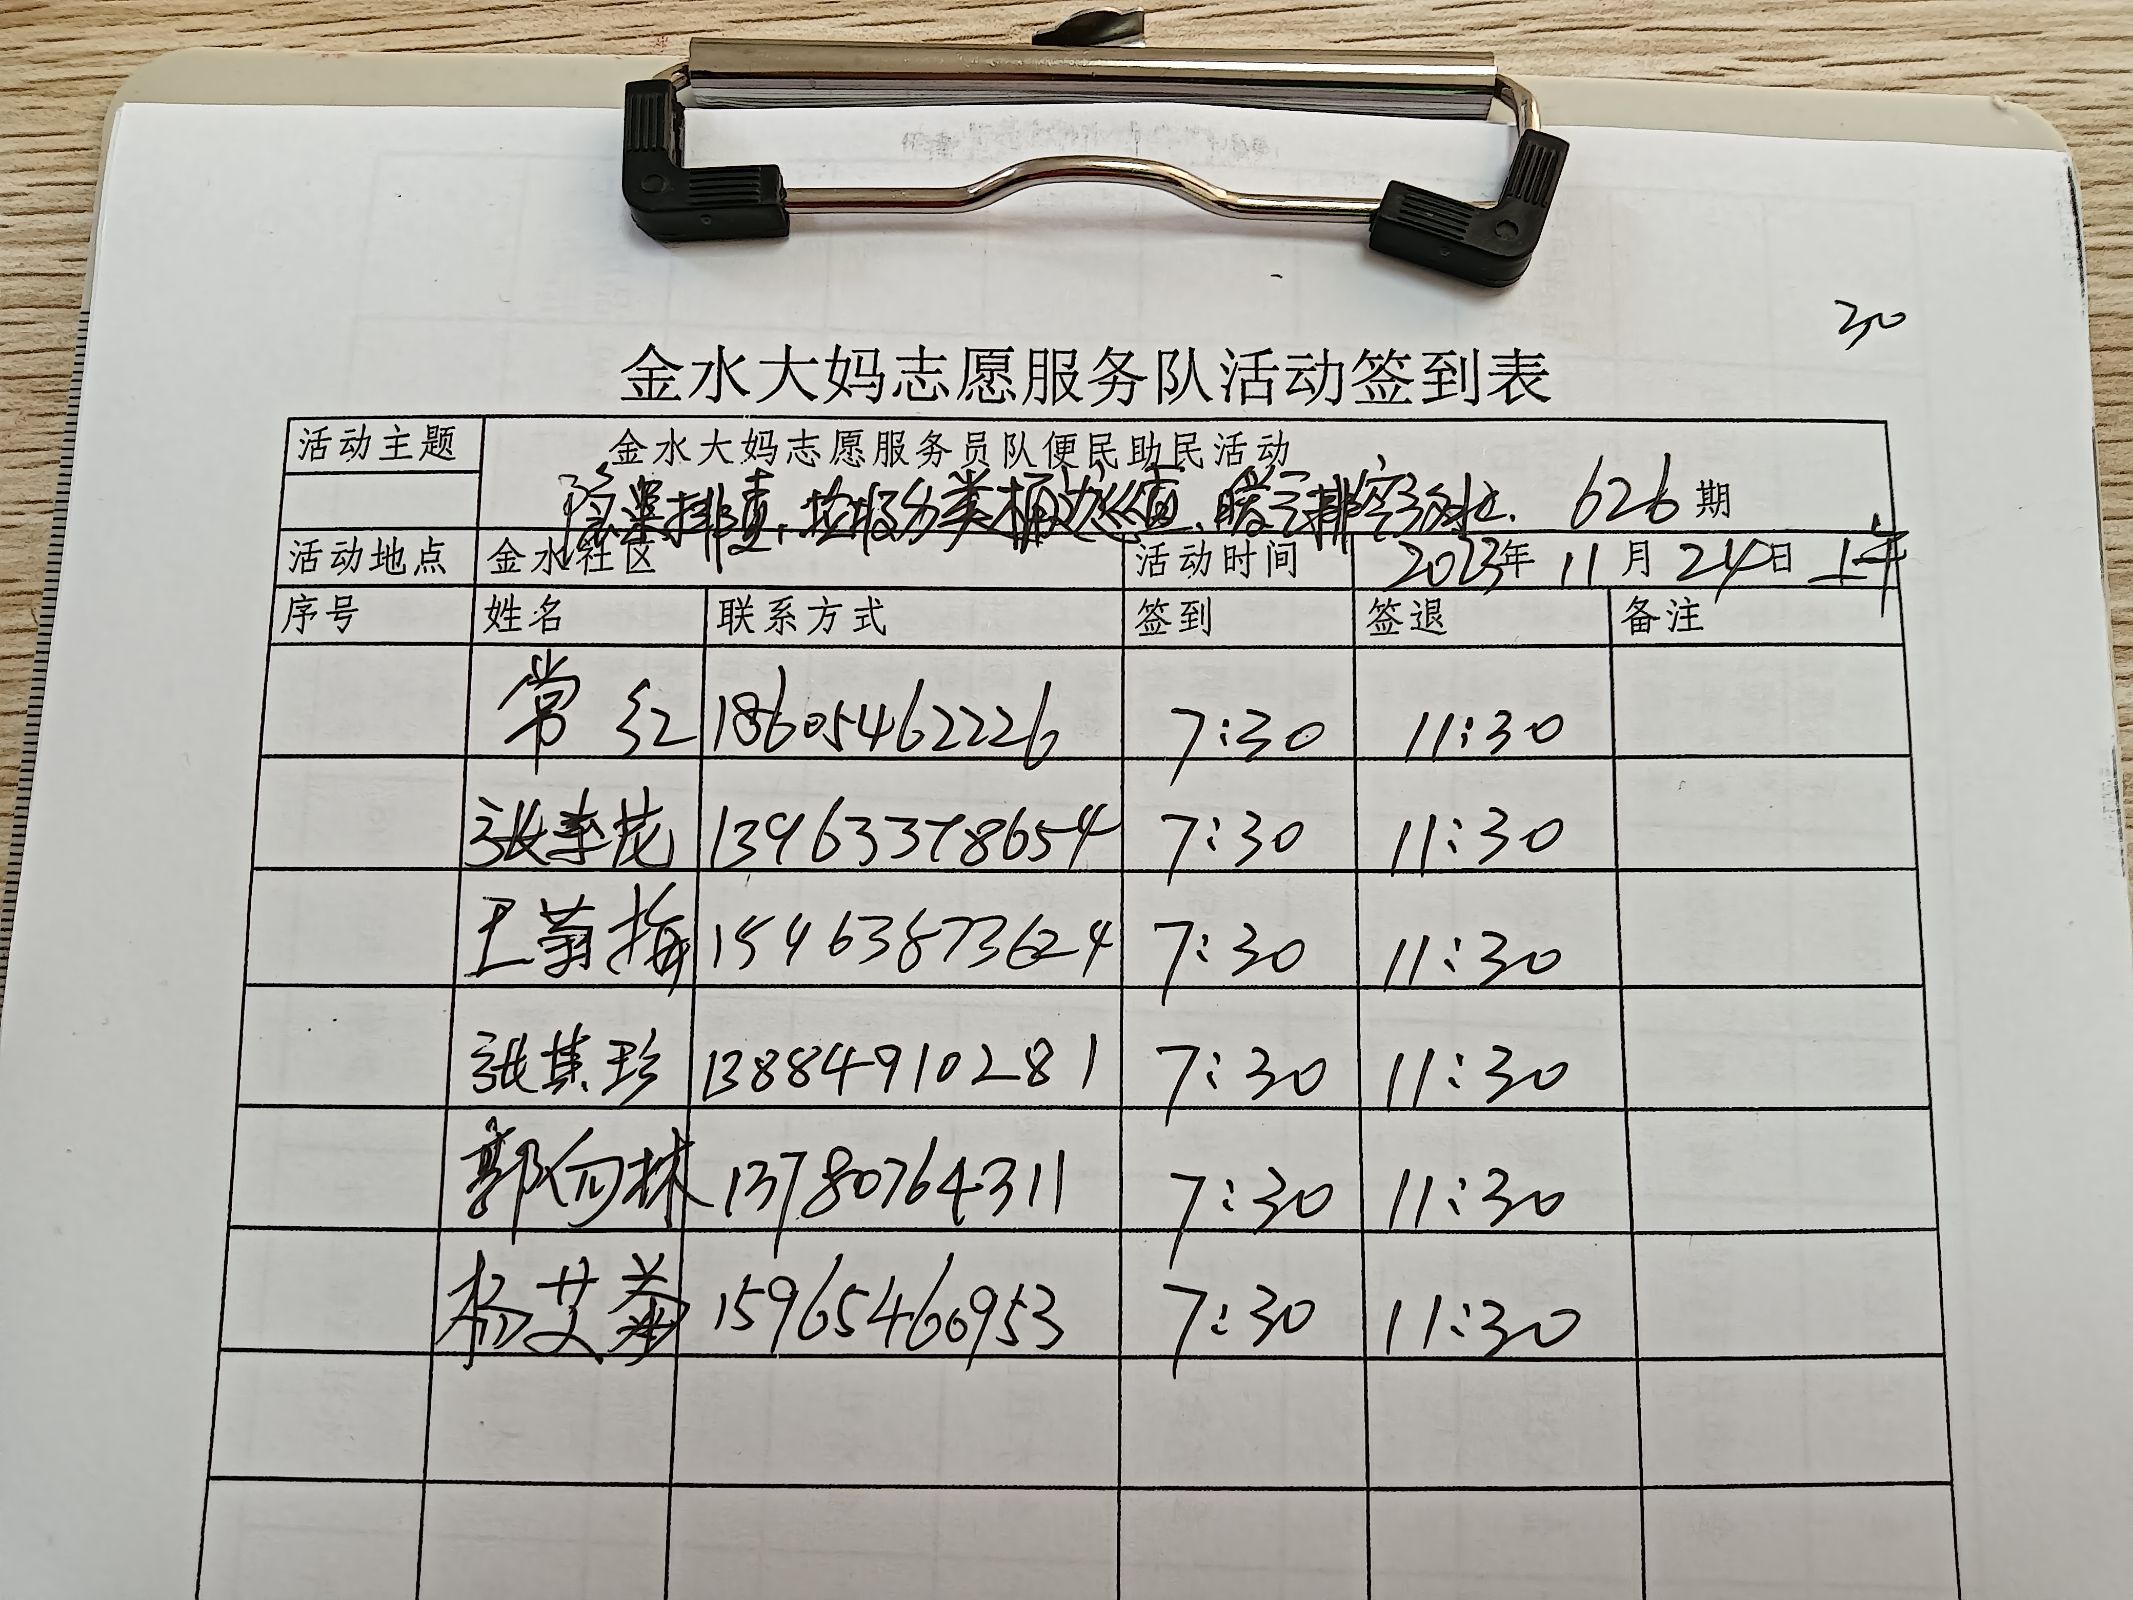 30
金水大妈志愿服务队活动签到表
活动主题 金水大妈志愿服务员队便民助民活动
隐患排查、垃圾分类桶边巡查、暖气排空 626期
活动地点 金水社区 活动时间 2023年11月24日 上午
序号 姓名 联系方式 签到 签退 备注
常红 18605462226 7:30 11:30
张 13963378654 7:30 11:30
王菊梅 15963873624 7:30 11:30
张其珍 13884910281 7:30 11:30
郭向林 13780764311 7:30 11:30
杨艾菊 15965460953 7:30 11:30